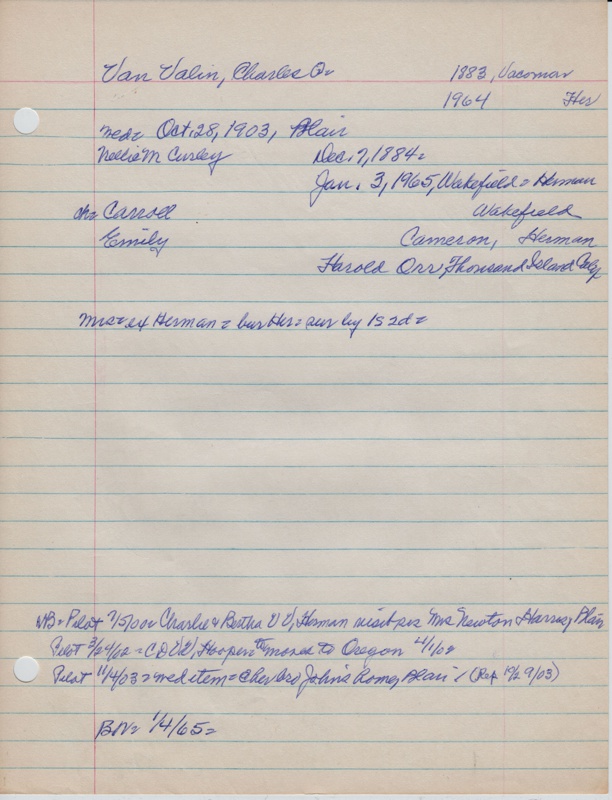 Van Valin, Charles O= 1883, Vacoma=
1964 Her
med= Oct. 28, 1903, Blair
Nellie M Curley Dec. 7, 1884=
Jan. 3, 1965, Wakefield= Herman
ch= Carroll Wakefield
Emily Cameron, Herman
Harold Orr, Thousand Island Calif
Mrs= ex Herman= bur Her= sur by 1s 2d=
NB= Pilot 7/5/00= Charlie & Bertha VV, Herman visit sis Mrs Newton Harris, Blair
Pilot 3/24/02= C D VV, Hooper to move to Oregon 4/1/02
Pilot 11/4/03= wed item= C her bro John's home, Blair (Rep 10/29/03)
BN= 1/4/65=